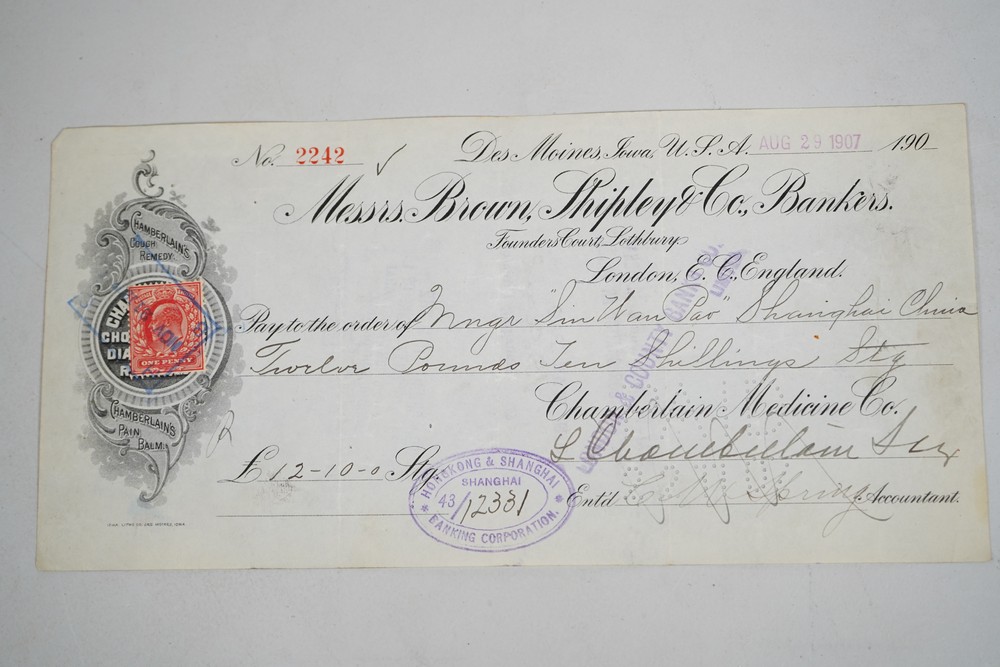 No. 2242
Des Moines, Iowa, U.S.A. AUG 29 1907 190
Messrs. Brown, Shipley & Co., Bankers.
Founders Court, Lothbury,
London, E.C., England.
Pay to the order of Mngr "Sin Wan Pao" Shanghai China
Twelve Pounds Ten Shillings Stg
Chamberlain Medicine Co.
£ 12-10-0 Stg
Chamberlain
Ent'd Accountant.
CHAMBERLAIN'S
COUGH
REMEDY.
CHA
CHO
DIA
R
ONE PENNY
CHAMBERLAIN'S
PAIN
BALM.
HONGKONG & SHANGHAI
SHANGHAI
43/12331
BANKING CORPORATION.
COUNTY